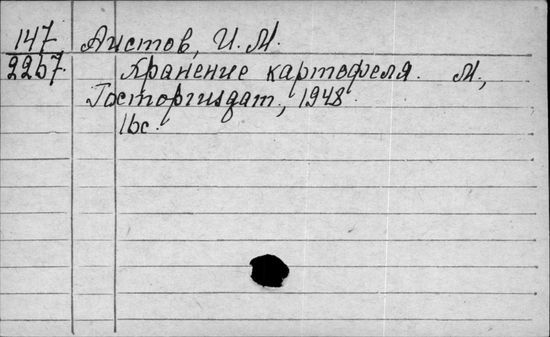 147 Аистов, И. М.
2267 Хранение картофеля. М.,
Госторгиздат, 1948.
16с.